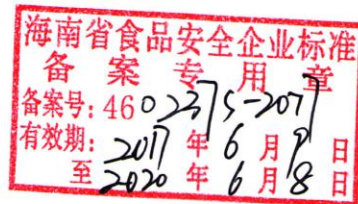 海南省食品安全企业标准
备案专用章
备案号：460237S-2017
有效期：2017年6月9日
至2020年6月8日